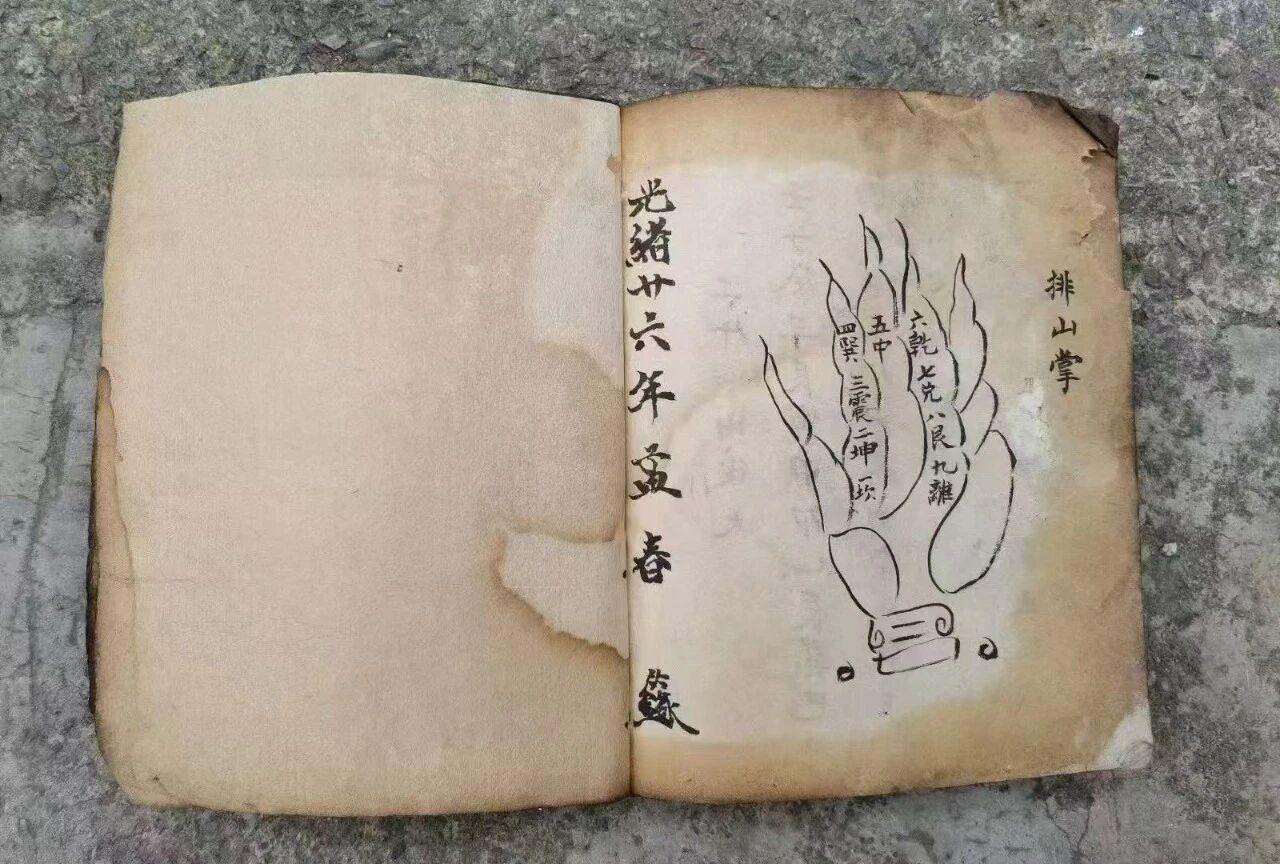 排山掌
四巽
三震
二坤
一坎
五中
六乾
七兌
八艮
九離
光緒廿六年孟春